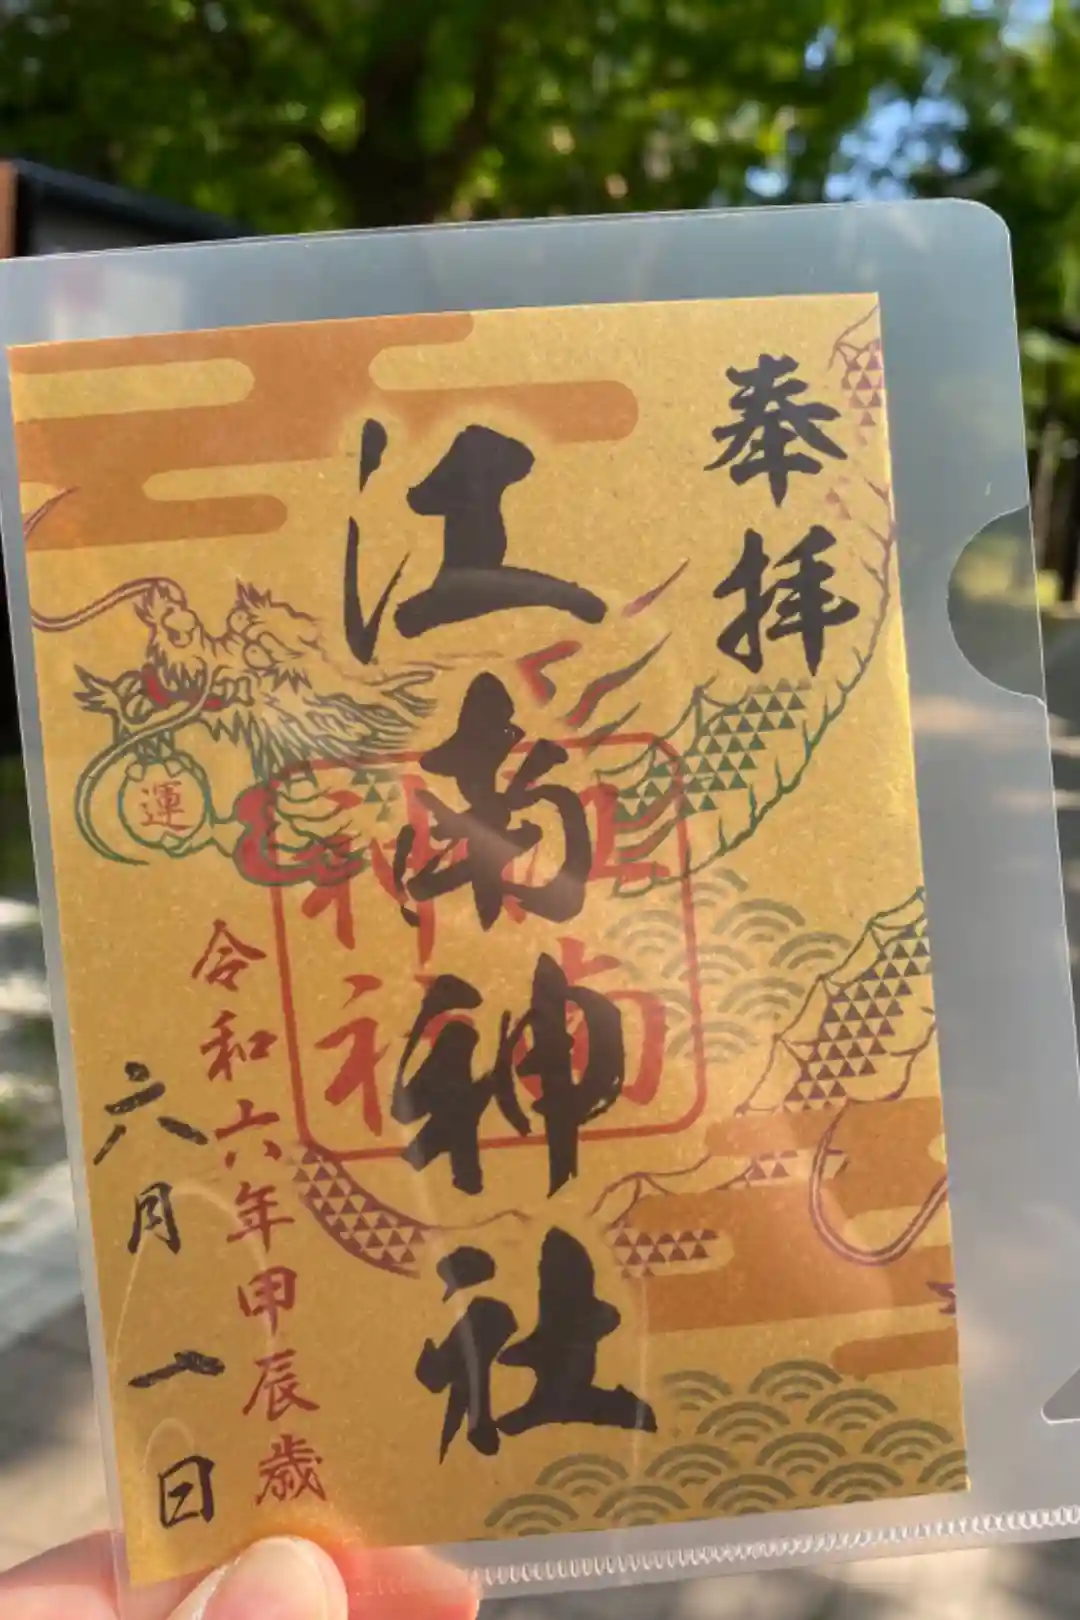 奉拝
江南神社
江南神社
運
令和六年甲辰歳
六月一日